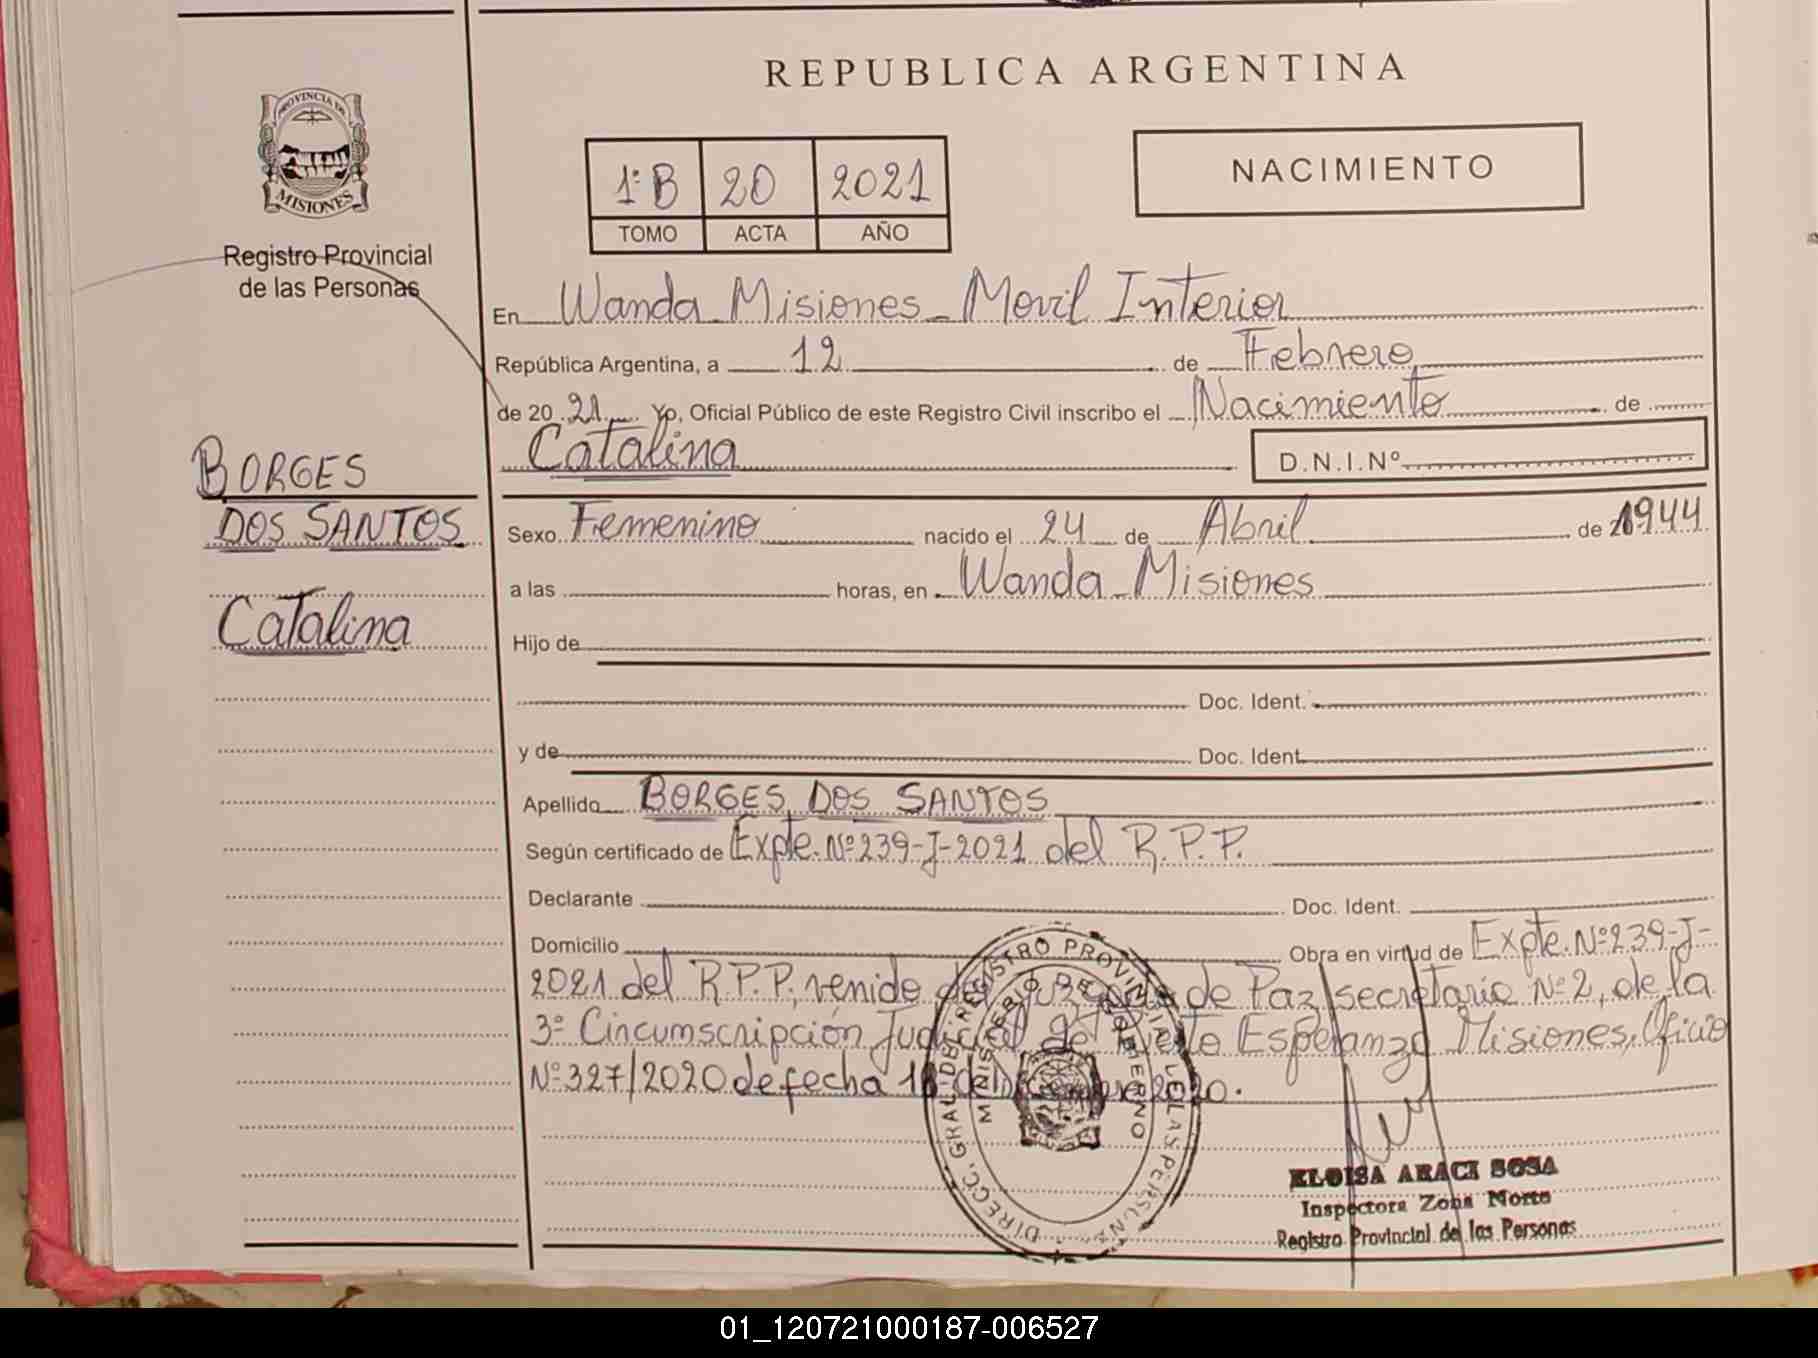 REPUBLICA ARGENTINA
PROVINCIA DE
MISIONES
Registro Provincial
de las Personas
1º B 20 2021
TOMO ACTA AÑO
NACIMIENTO
En Wanda Misiones - Movil Interior
República Argentina, a 12 de Febrero
de 20 21 Yo, Oficial Público de este Registro Civil inscribo el Nacimiento de
Catalina
D.N.I.Nº
BORGES
DOS SANTOS
Catalina
Sexo Femenino nacido el 24 de Abril de 1944
a las horas, en Wanda - Misiones
Hijo de
Doc. Ident.
y de Doc. Ident.
Apellido BORGES DOS SANTOS
Según certificado de Expte. Nº 239-J-2021 del R.P.P.
Declarante Doc. Ident.
Domicilio Obra en virtud de Expte. Nº 239-J-
2021 del R.P.P, venido del Juzgado de Paz, secretaria Nº 2, de la
3º Circumscripción Judicial de Puerto Esperanza Misiones, Oficio
Nº 327/2020 de fecha de 2020.
DIRECC. GRAL. DE REGISTRO PROVINCIAL DE LAS PERSONAS
MINISTERIO DE GOBIERNO
ELOISA ARACI SOSA
Inspectora Zona Norte
Registro Provincial de las Personas
01_120721000187-006527